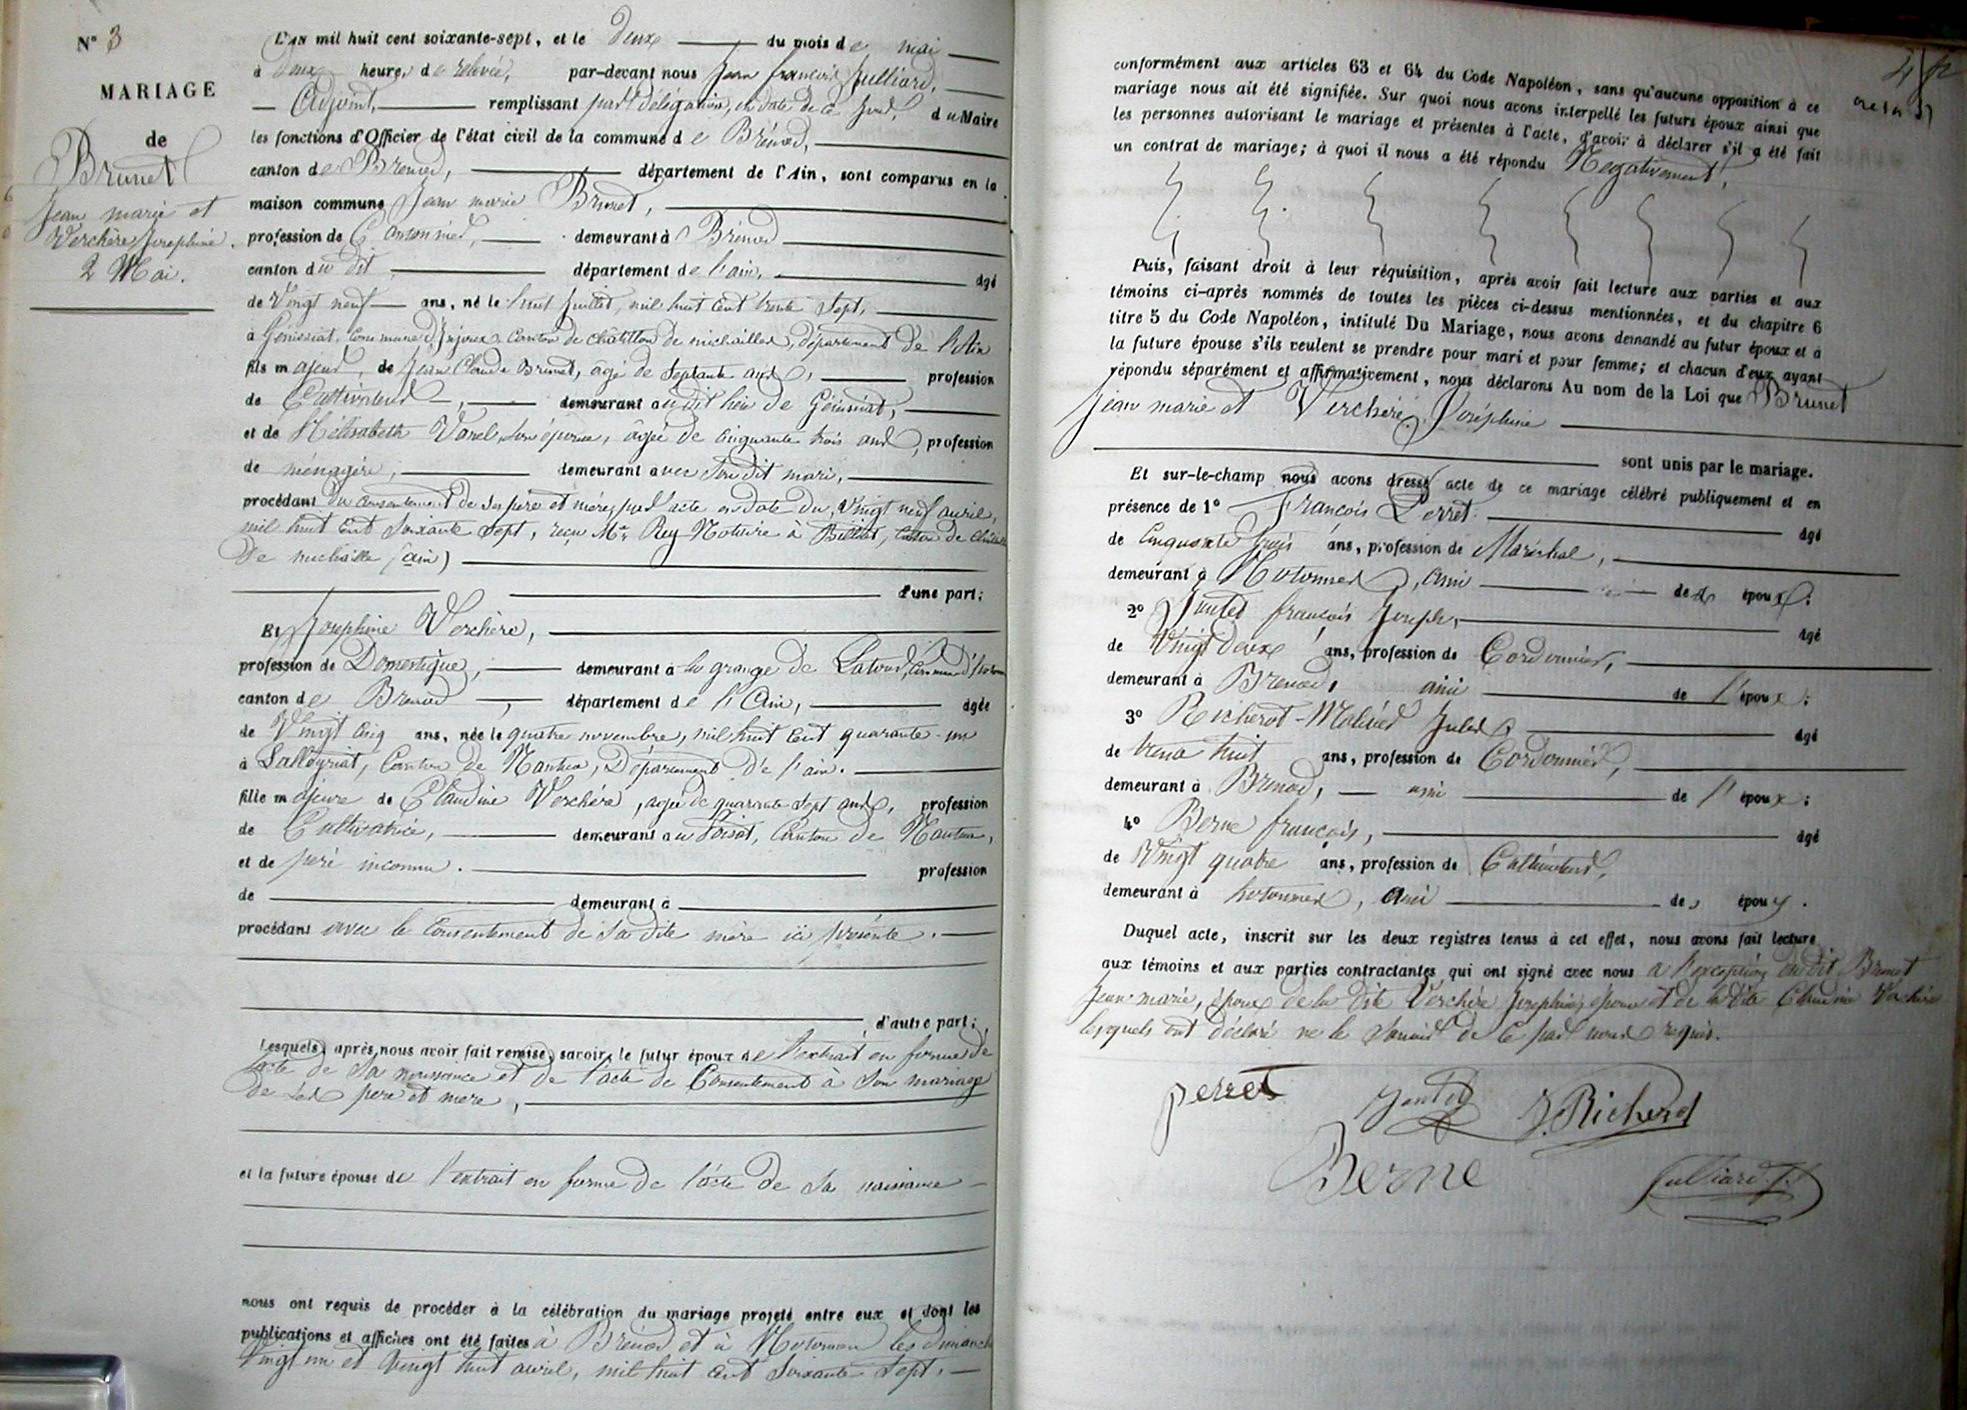 N° 3
MARIAGE
de
Brunet
Jean marie et
Verchère Josephine.
2 Mai.
L'an mil huit cent soixante-sept, et le deux du mois de mai
à deux heures de relevée, par-devant nous Jean françois Julliard,
Adjoint, remplissant par délégation, en date de ce jour, du Maire
les fonctions d'Officier de l'état civil de la commune de Brénod,
canton de Brenod, département de l'Ain, sont comparus en la
maison commune Jean marie Brunet,
profession de Cantonnier, demeurant à Brénod
canton du dit département de l'ain, âgé
de Vingt neuf ans, né le huit Juillet, mil huit cent trente sept,
à Génissiat, Commune d'Injoux Canton de châtillon de michailles, département de l'Ain
fils majeur, de Jean Claude Brunet, âgé de septante ans, profession
de Cultivateur, demeurant au dit lieu de Génissiat,
et de Hélisabeth Varel, son épouse, âgée de cinquante trois ans, profession
de ménagère, demeurant avec son dit mari,
procédant du consentement de ses père et mère, par acte en date du, vingt neuf avril,
mil huit cent soixante sept, reçu Mr Rey Notaire à Billiat, canton de châtillon
de michaille (ain)
d'une part;
Et Josephine Verchère,
profession de Domestique, demeurant à la grange de Latour, Commune d'hotonnes
canton de Brenod, département de l'Ain, âgée
de Vingt cinq ans, née le quatre novembre, mil huit cent quarante-un
à Lalleyriat, Canton de Nantua, Département de l'ain.
fille majeure de Claudine Verchère, agée de quarante sept ans, profession
de Cultivatrice, demeurant au Poizat, Canton de Nantua,
et de père inconnu. profession
de demeurant à
procédant avec le consentement de sa dite mère ici présente.
d'autre part;
Lesquels, après nous avoir fait remise, savoir, le futur époux de l'extrait en forme de
l'acte de sa naissance et de l'acte de Consentement à son mariage
de ses pere et mere,
et la future épouse de l'extrait en forme de l'acte de sa naissance
nous ont requis de procéder à la célébration du mariage projeté entre eux et dont les
publications et affiches ont été faites à Brénod et à Hotonnes les dimanche
vingt un et vingt huit avril, mil huit cent soixante sept.
conformément aux articles 63 et 64 du Code Napoléon, sans qu'aucune opposition à ce
mariage nous ait été signifiée. Sur quoi nous avons interpellé les futurs époux ainsi que
les personnes autorisant le mariage et présentes à l'acte, d'avoir à déclarer s'il a été fait
un contrat de mariage; à quoi il nous a été répondu Negativement,
Puis, faisant droit à leur réquisition, après avoir fait lecture aux parties et aux
témoins ci-après nommés de toutes les pièces ci-dessus mentionnées, et du chapitre 6
titre 5 du Code Napoléon, intitulé Du Mariage, nous avons demandé au futur époux et à
la future épouse s'ils veulent se prendre pour mari et pour femme; et chacun d'eux ayant
répondu séparément et affirmativement, nous déclarons Au nom de la Loi que Brunet
jean marie et Verchère Joséphine
sont unis par le mariage.
Et sur-le-champ nous avons dressé acte de ce mariage célébré publiquement et en
présence de 1° François Perret. âgé
de Cinquante trois ans, profession de Maréchal,
demeurant à Hotonnes, ami des époux;
2° Jantet françois Joseph, âgé
de Vingt deux ans, profession de Cordonnier,
demeurant à Brenod, ami de l'époux;
3° Richerot-Molined Jules âgé
de trente huit ans, profession de Cordonnier,
demeurant à Brenod, ami de l'époux;
4° Berne françois, âgé
de Vingt quatre ans, profession de Cultivateur,
demeurant à hotonnes, Ami des époux.
Duquel acte, inscrit sur les deux registres tenus à cet effet, nous avons fait lecture
aux témoins et aux parties contractantes qui ont signé avec nous a l'exception du dit Brunet
Jean marie, époux de la dite Verchère Josephine, épouse et de la dite Claudine Verchère
lesquels ont déclaré ne le savoir de ce par nous requis.
perret Jantet J. Richerot
Berne Julliard. f.